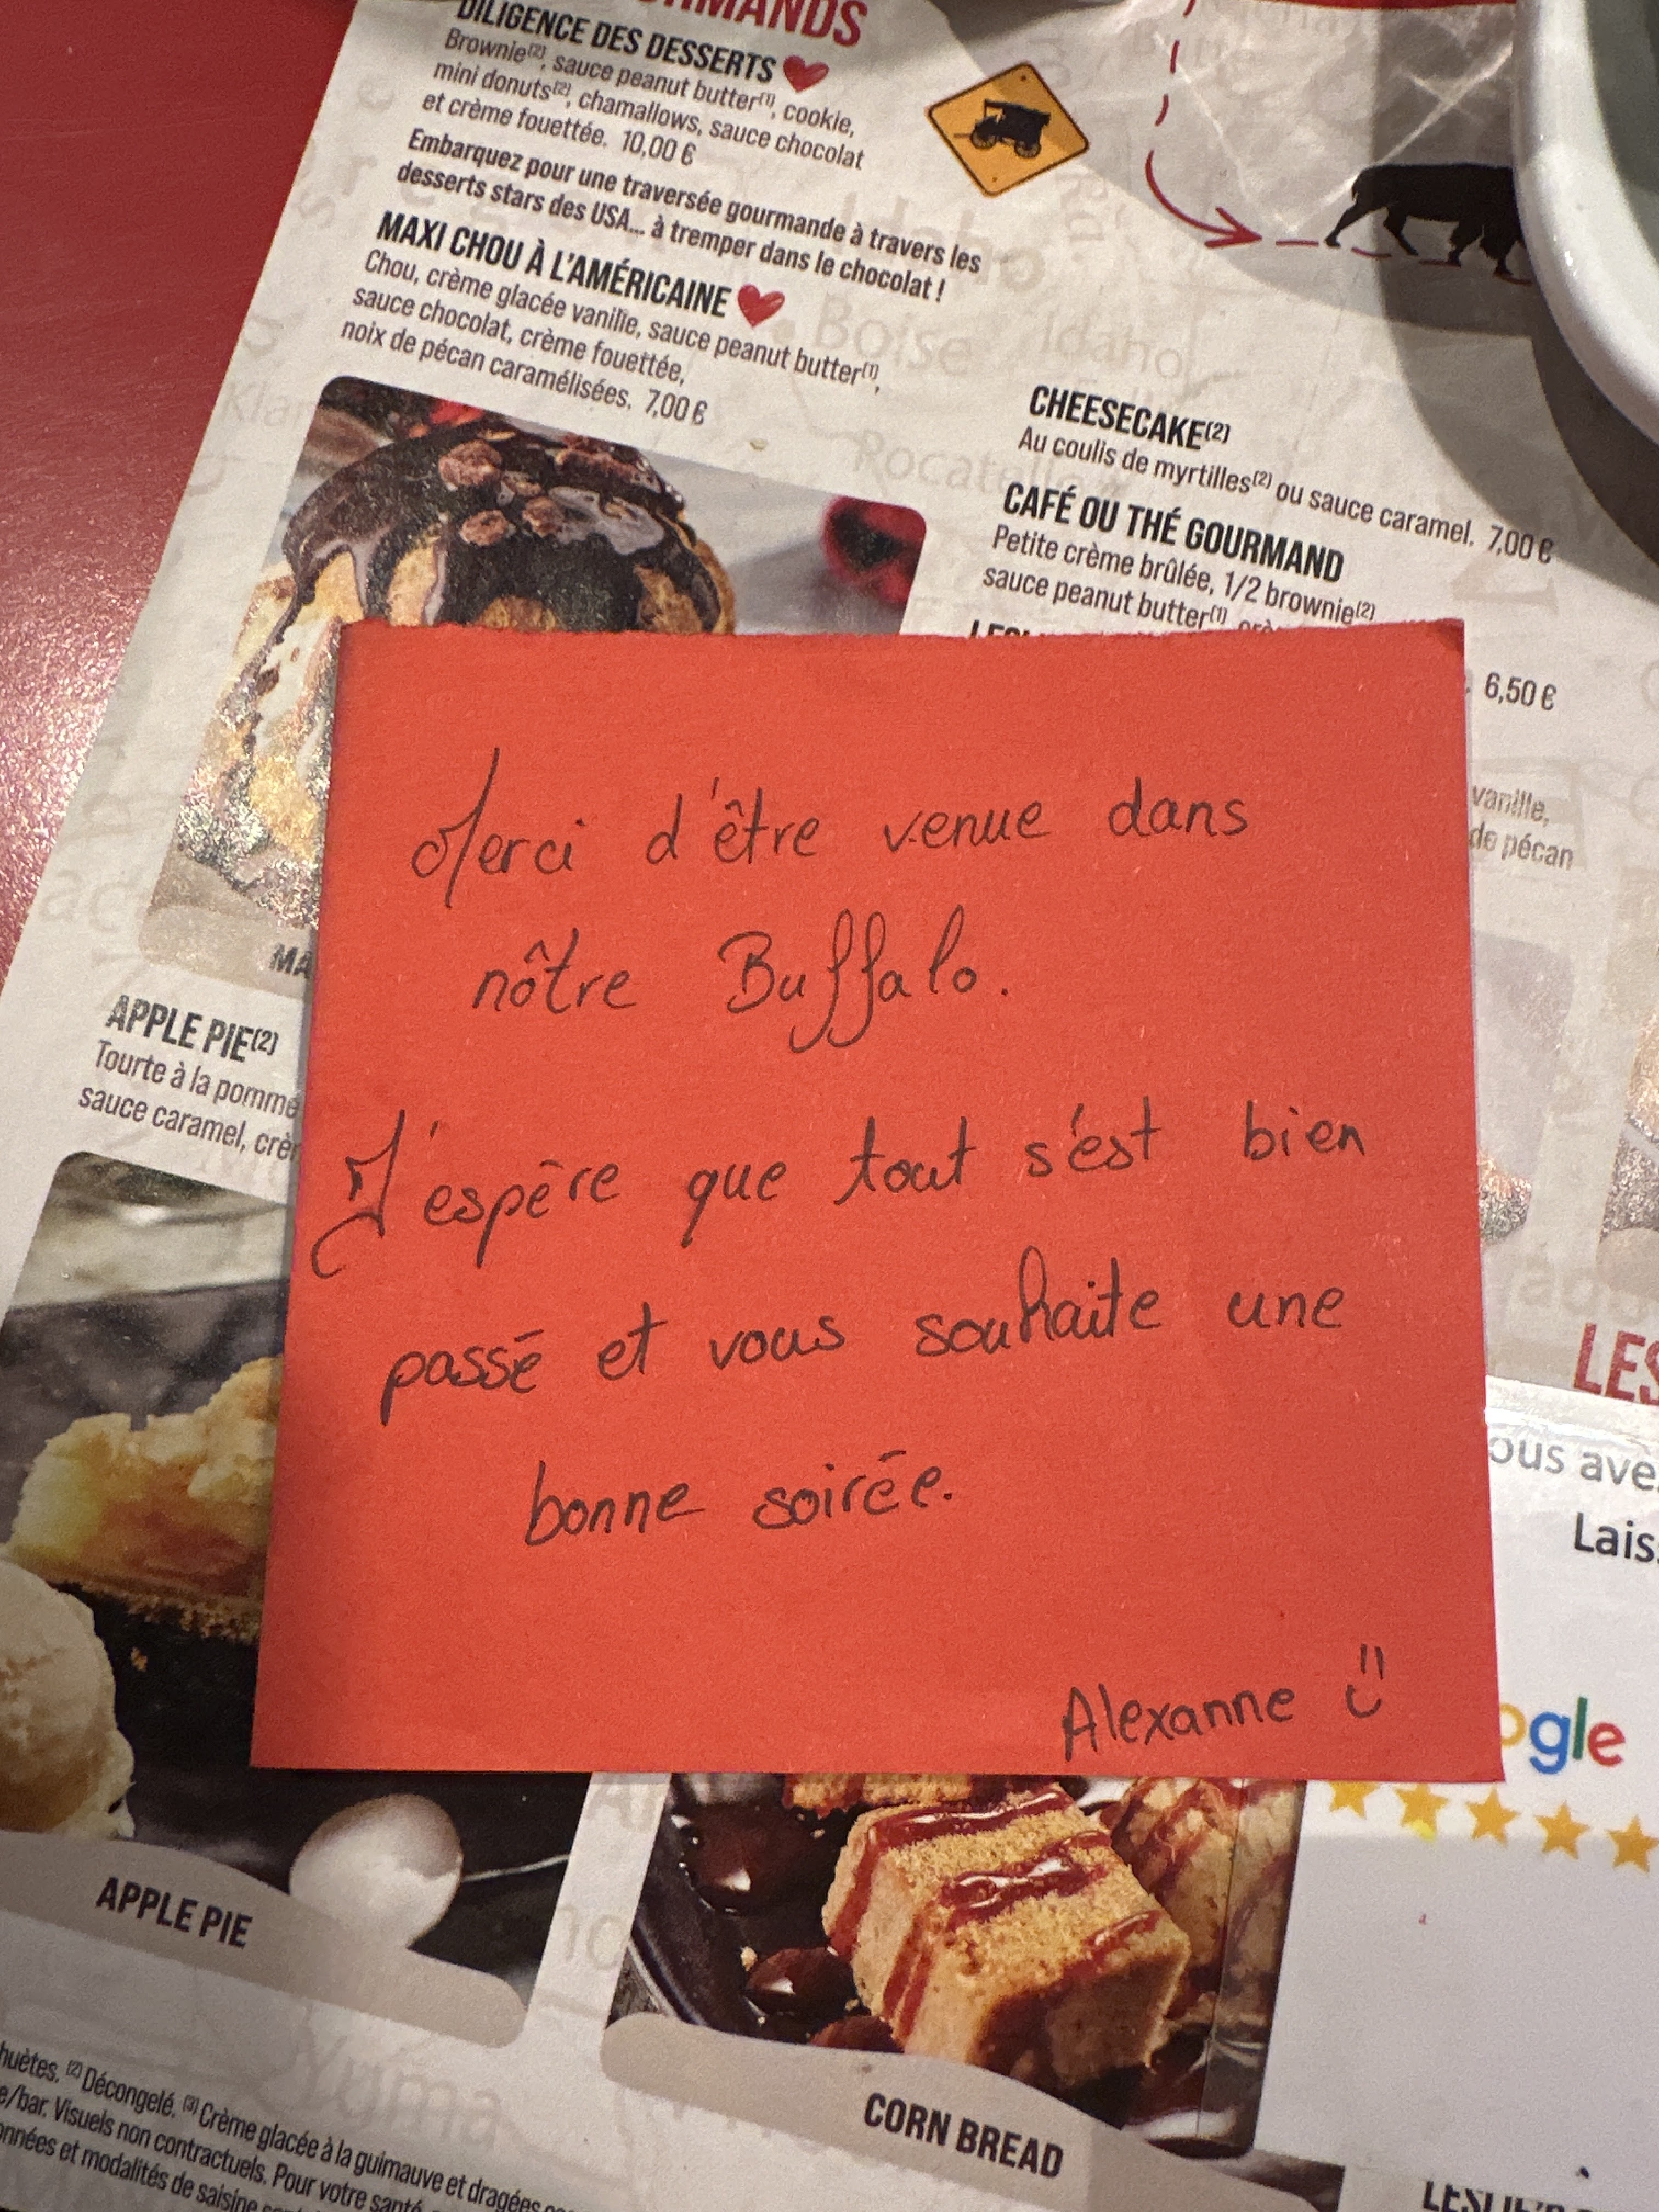 DILIGENCE DES DESSERTS
Brownie(2), sauce peanut butter(1), cookie,
mini donuts(2), chamallows, sauce chocolat
et crème fouettée. 10,00 €
Embarquez pour une traversée gourmande à travers les
desserts stars des USA... à tremper dans le chocolat !
MAXI CHOU À L'AMÉRICAINE
Chou, crème glacée vanille, sauce peanut butter(1),
sauce chocolat, crème fouettée,
noix de pécan caramélisées. 7,00 €
Boise
Idaho
CHEESECAKE(2)
Au coulis de myrtilles(2) ou sauce caramel. 7,00 €
CAFÉ OU THÉ GOURMAND
Petite crème brûlée, 1/2 brownie(2)
sauce peanut butter(1)
6,50 €
vanille,
de pécan
Merci d'être venue dans
nôtre Buffalo.
J'espère que tout s'est bien
passé et vous souhaite une
bonne soirée.
Alexanne
APPLE PIE(2)
Tourte à la pomme
sauce caramel,
APPLE PIE
CORN BREAD
LES
ogle
(2) Décongelé. (3) Crème glacée à la guimauve et dragées
e/bar. Visuels non contractuels. Pour votre santé
onnées et modalités de saisine
Yuma